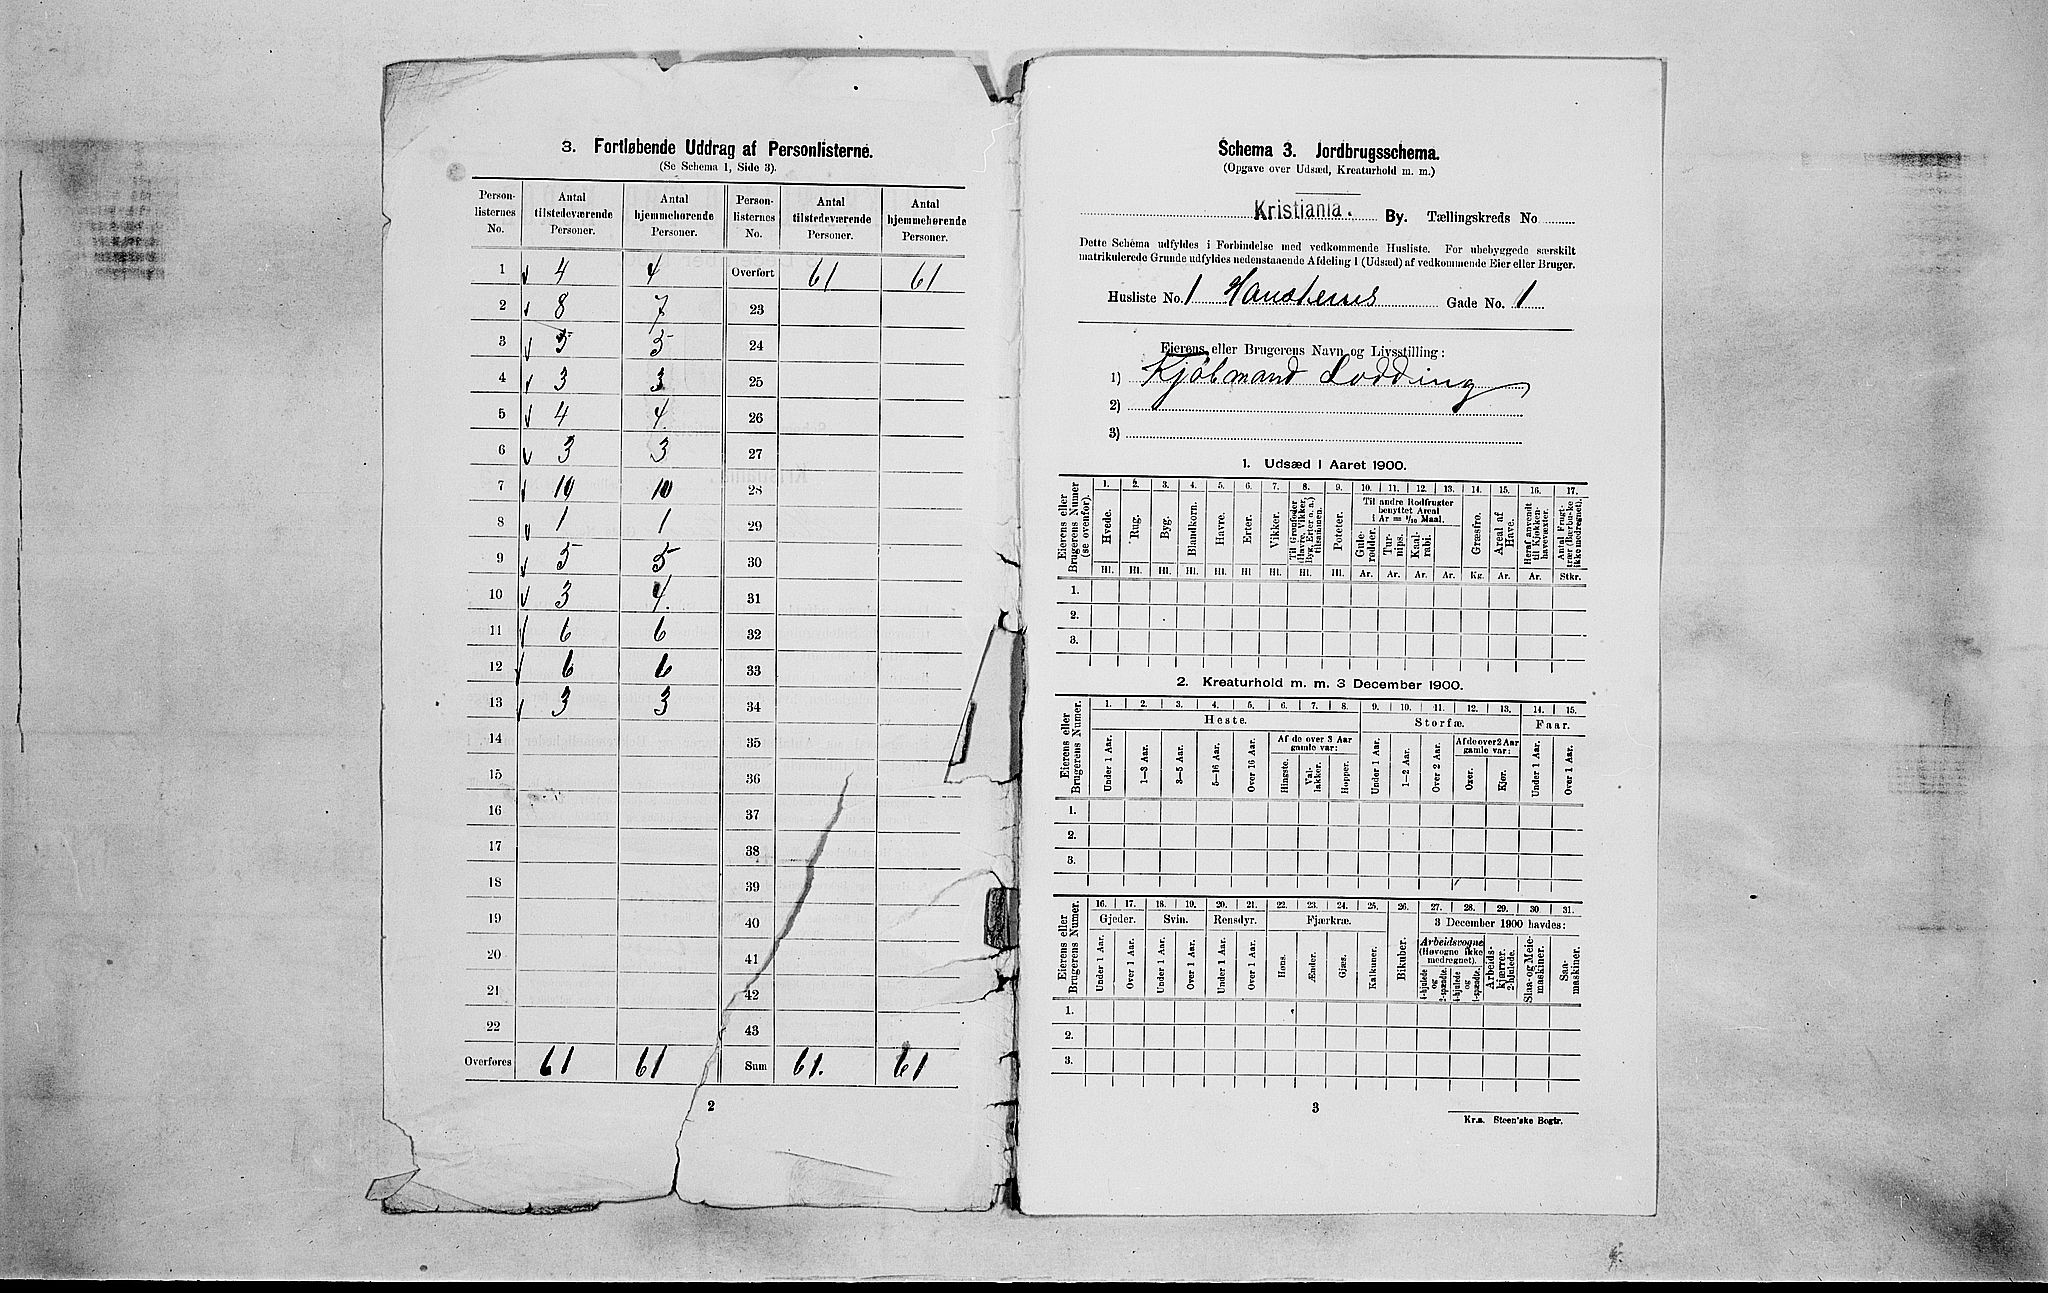 3. Fortløbende Uddrag af Personlisterne.
(Se Schema 1, Side 3).
Person-listernes No. | Antal tilstedeværende Personer. | Antal hjemmehørende Personer. | Person-listernes No. | Antal tilstedeværende Personer. | Antal hjemmehørende Personer.
1 4 4 Overført 61 61
2 8 7 23
3 5 5 24
4 3 3 25
5 4 4. 26
6 3 3 27
7 10 10 28
8 1 1 29
9 5 5 30
10 3 4. 31
11 6 6 32
12 6 6 33
13 3 3 34
14 35
15 36
16 37
17 38
18 39
19 40
20 41
21 42
22 43
Overføres 61 61 Sum 61. 61
2
Schema 3. Jordbrugsschema.
(Opgave over Udsæd, Kreaturhold m. m.)
Kristiania. By. Tællingskreds No
Dette Schema udfyldes i Forbindelse med vedkommende Husliste. For ubebyggede særskilt
matrikulerede Grunde udfyldes nedenstaaende Afdeling 1 (Udsæd) af vedkommende Eier eller Bruger.
Husliste No. 1 Gade No. 1
Eierens eller Brugerens Navn og Livsstilling:
1) Kjøbmand Lodding
2)
3)
1. Udsæd i Aaret 1900.
Eierens eller Brugerens Numer (se ovenfor).
1. 2. 3. 4. 5. 6. 7. 8. 9. 10. 11. 12. 13. 14. 15. 16. 17.
Hvede. Rug. Byg. Blandkorn. Havre. Erter. Vikker. Til Grønfoder (Havre, Vikker, Byg, Erter o. a.) tilsammen. Poteter. Til andre Rodfrugter benyttet Areal i Ar = 1/10 Maal. Gulerødder. Turnips. Kaalrabi. Græsfrø. Areal af Have. Heraf anvendt til Kjøkkenhavevæxter. Antal Frugttrær (Bærbuske ikke medregnet).
Hl. Hl. Hl. Hl. Hl. Hl. Hl. Hl. Hl. Ar. Ar. Ar. Ar. Kg. Ar. Ar. Stkr.
1.
2.
3.
2. Kreaturhold m. m. 3 December 1900.
Eierens eller Brugerens Numer.
1. 2. 3. 4. 5. 6. 7. 8. 9. 10. 11. 12. 13. 14. 15.
Heste. Storfæ. Faar.
Under 1 Aar. 1—3 Aar. 3—5 Aar. 5—16 Aar. Over 16 Aar. Af de over 3 Aar gamle var: Hingste. Vallakker. Hopper. Under 1 Aar. 1—2 Aar. Over 2 Aar. Af de over 2 Aar gamle var: Oxer. Kjør. Under 1 Aar. Over 1 Aar.
1.
2.
3.
Eierens eller Brugerens Numer.
16. 17. 18. 19. 20. 21. 22. 23. 24. 25. 26. 27. 28. 29. 30 31.
Gjeder. Svin. Rensdyr. Fjærkræ. 3 December 1900 havdes:
Under 1 Aar. Over 1 Aar. Under 1 Aar. Over 1 Aar. Under 1 Aar. Over 1 Aar. Høns. Ænder. Gjæs. Kalkuner. Bikuber. Arbeidsvogne (Høvogne ikke medregnet). 4-hjulede og 2-spændte. 4-hjulede og 1-spændte. Arbeidskjærrer, 2-hjulede. Slaa- og Meiemaskiner. Saamaskiner.
1.
2.
3.
3
Kr.a. Steen'ske Bogtr.